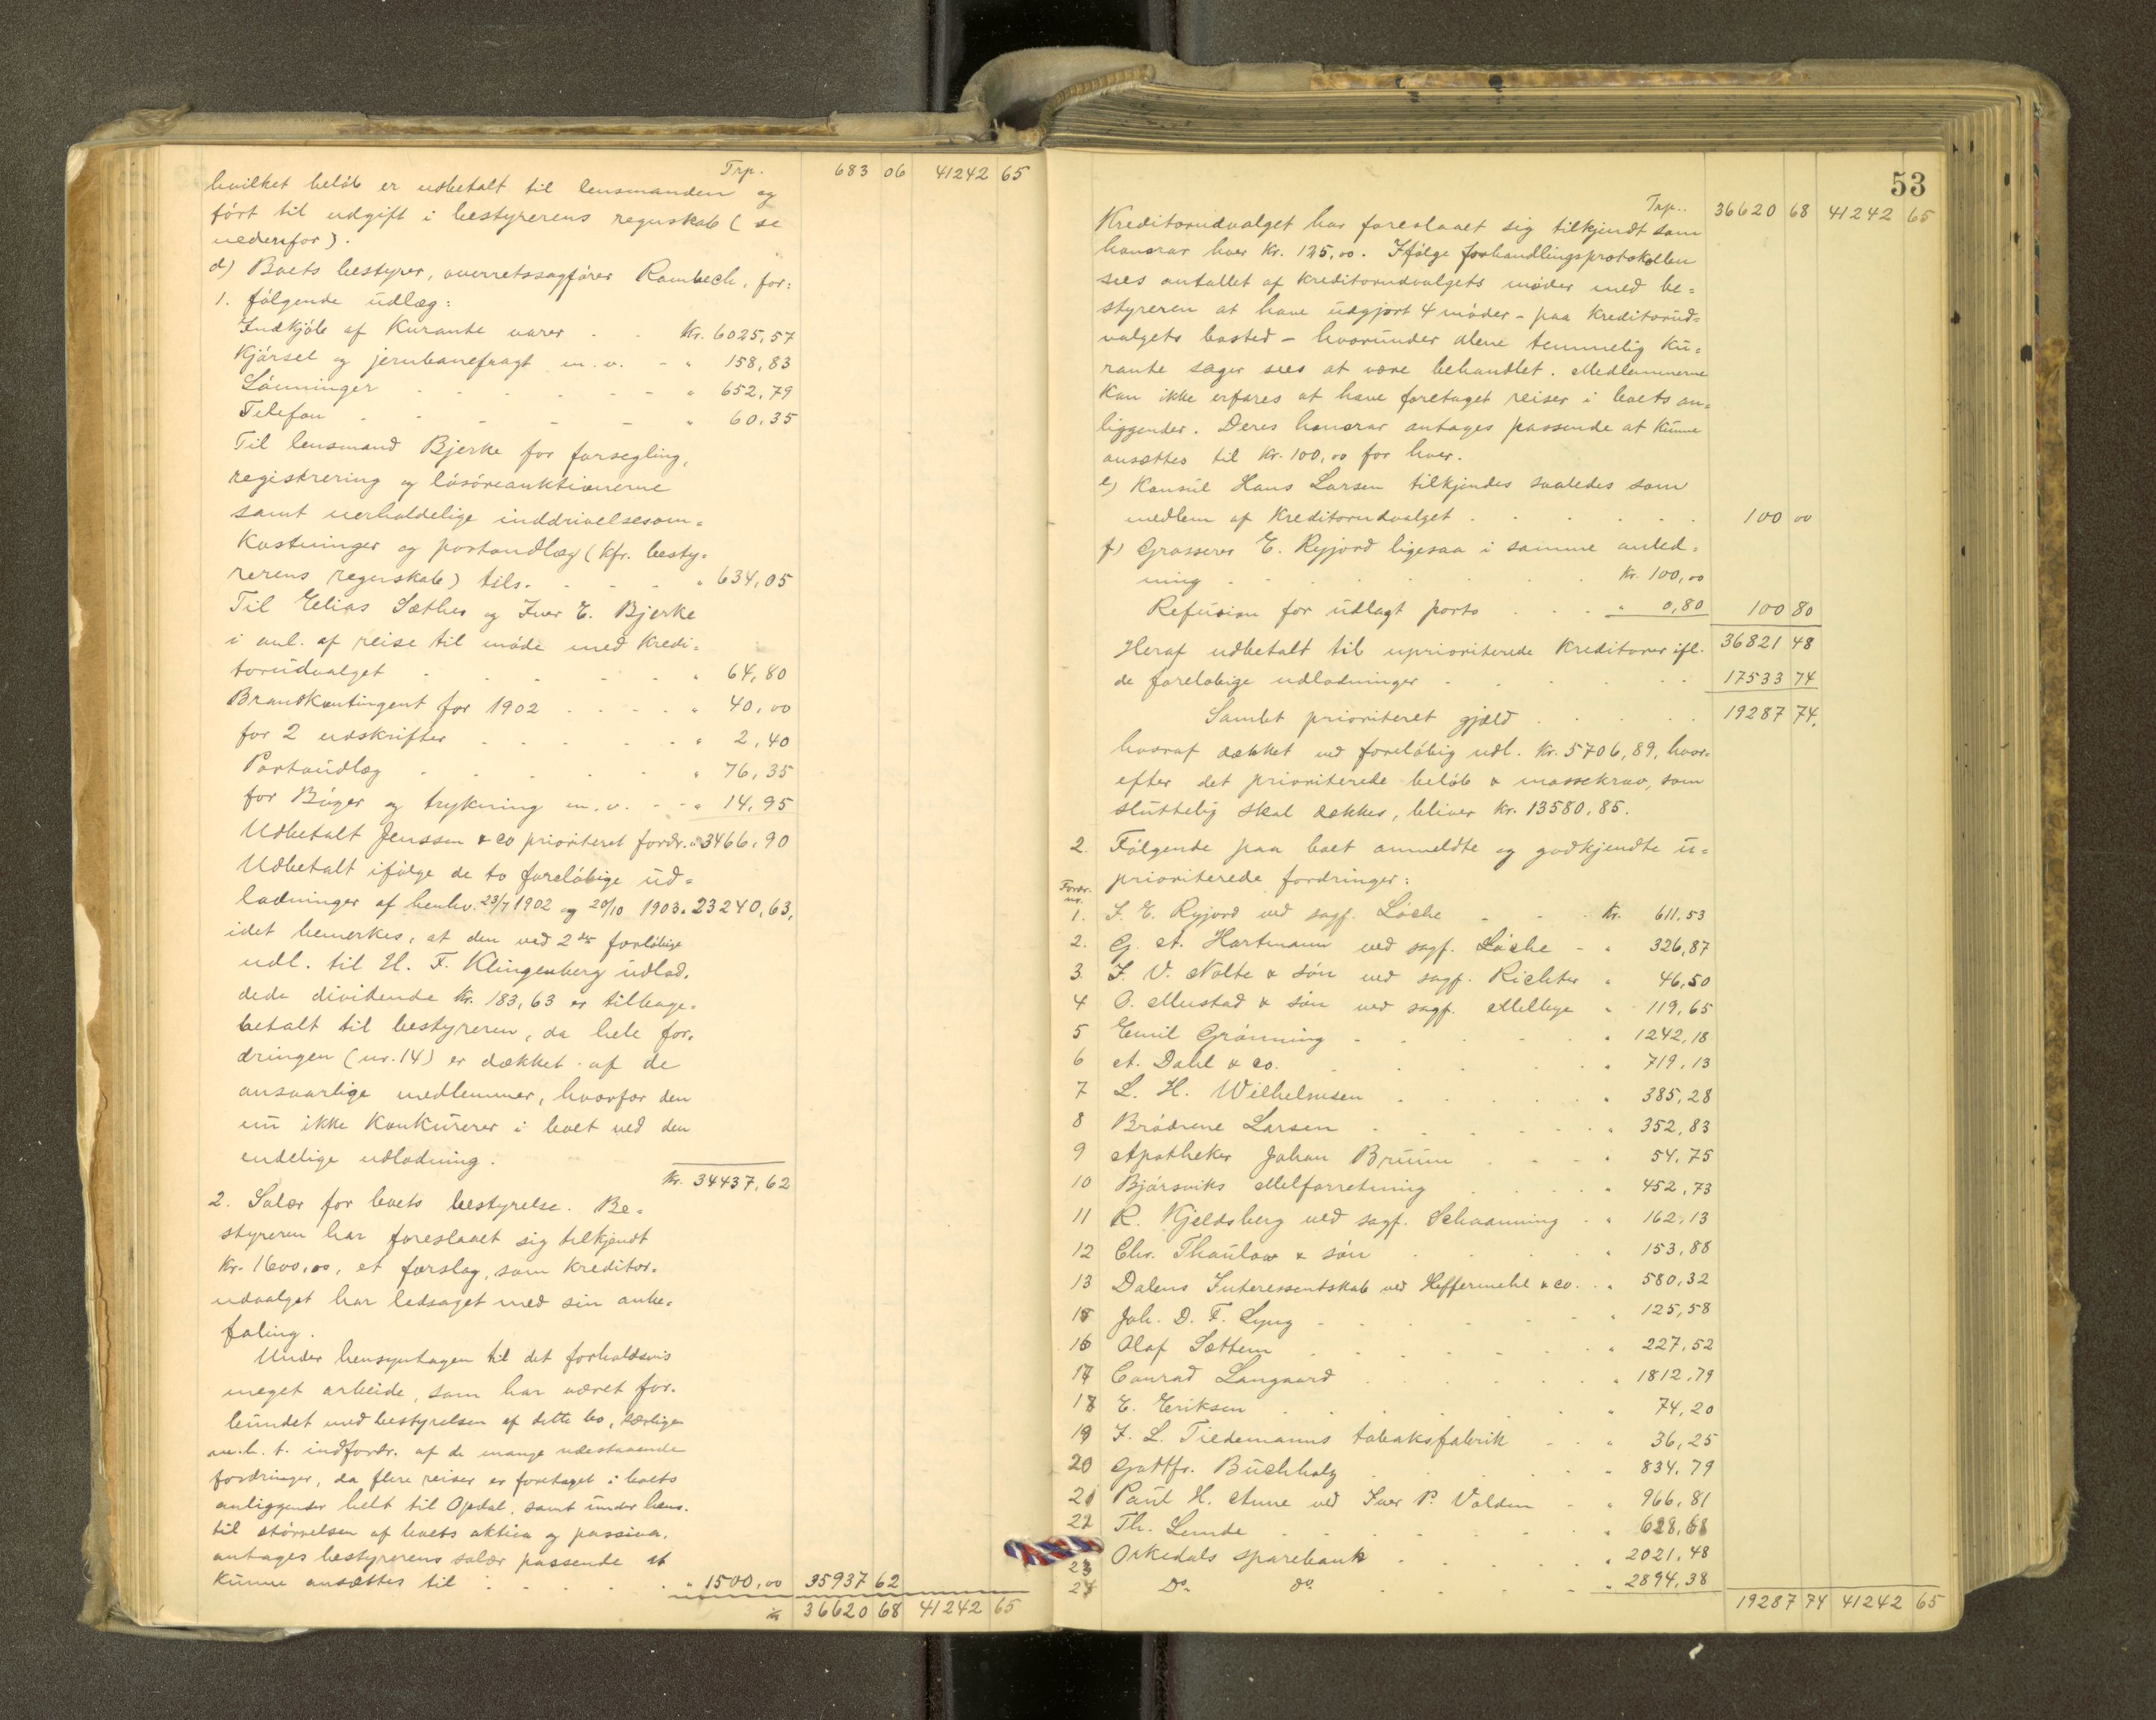 Trp. 683 06 41242 65
hvilket beløb er udbetalt til lensmanden og
ført til udgift i bestyrerens regnskab (se
nedenfor).
d) Boets bestyrer, overretssagfører Rambech, for:
1. følgende udlæg:
Indkjøb af Kurante varer - - Kr. 6025,57
Kjørsel og jernbanefragt m.v. - " 158,83
Lønninger " 652,79
Telefon " 60,35
Til lensmand Bjerke for forsegling,
registrering og løsøreauktionerne
samt uerholdelige inddrivelsesom=
kostninger og portoudlæg (kfr. besty=
rerens regnskab) tils. " 634,05
Til Elias Sæther og Iver E. Bjerke
i anl. af reise til møde med Kredi=
torudvalget " 64,80
Brandkontingent for 1902 " 40,00
for 2 udskrifter " 2,40
Portoudlæg " 76,35
for Bøger og trykning m.v. - - " 14,95
Udbetalt Jenssen & Co prioriteret fordr. " 3466,90
Udbetalt ifølge de to foreløbige ud=
lodninger af henhv. 23/7 1902 og 20/10 1903 " 23240,63,
idet bemerkes, at den ved 2den foreløbige
udl. til H. F. Klingenberg udlod.
dede dividende Kr. 183,63 er tilbage=
betalt til bestyreren, da hele for.
dringen (nr. 14) er dækket af de
ansvarlige medlemmer, hvorfor den
nu ikke Konkurerer i boet ved den
endelige udlodning.
Kr. 34437,62
2. Salær for boets bestyrelse. Be=
styreren har foreslaaet sig tilkjendt
Kr. 1600,00, et forslag, som kreditor.
udvalget har ledsaget med sin anbe=
faling.
Under hensyntagen til det forholdsvis
meget arbeide, som har været for.
bundet med bestyrelsen af dette bo, særligen
m.h.t. indfordr. af de mange udestaaende
fordringer, da flere reiser er foretaget i boets
anliggender helt til Opdal, samt under hens.
til størrelsen af boets aktiva og passiva,
antages bestyrerens salær passende at
Kunne ansættes til " 1500,00 35937 62
36620 68 41242 65
53
Trp.. 36620 68 41242 65
Kreditorudvalget har foreslaaet sig tilkjendt som
honorar hver Kr. 125,00. Ifølge forhandlingsprotokollen
sees antallet af kreditorudvalgets møder med be=
styreren at have udgjort 4 møder - paa Kreditorud=
valgets bosted - hvorunder alene temmelig Ku=
rante sager sees at være behandlet. Medlemmerne
Kan ikke erfares at have foretaget reiser i boets an=
liggender. Deres honorar antages passende at Kunne
ansættes til Kr. 100,00 for hver.
e) Konsul Hans Larsen tilkjendes saaledes som
medlem af Kreditorudvalget 100 00
f) Grosserer E. Ryjord ligesaa i samme anled=
ning Kr. 100,00
Refusion for udlagt porto " 0,80 100 80
Heraf udbetalt til uprioriterede Kreditorer ifl. 36821 48
de foreløbige udlodninger 17533 74
Samlet prioriteret gjæld 19287 74.
hvoraf dækket ved foreløbig udl. Kr. 5706,89, hvor=
efter det prioriterede beløb & massekrav, som
sluttelig skal dækkes, bliver Kr. 13580,85.
2. Følgende paa boet anmeldte og godkjendte u=
prioriterede fordringer:
Fordr. nr.
1. F. E. Ryjord ved sagf. Løche - - - Kr. 611,53
2. G. A. Hartmann ved sagf. Løche - " 326,87
3. F. V. Nolte & søn ved sagf. Richter " 46,50
4 O. Mustad & søn ved sagf. Mellbye " 119,65
5 Emil Grønning " 1242,18
6 A. Dahl & Co. " 719,13
7 L. H. Wilhelmsen " 385,28
8 Brødrene Larsen " 352,83
9 Apotheker Johan Bruun " 54,75
10 Bjørsviks Melforretning " 452,73
11 R. Kjeldsberg ved sagf. Schaanning " 162,13
12 Chr. Thaulow & søn " 153,88
13 Dalens Interessentskab ved Heffermehl & Co. " 580,32
15 Joh. D. F. Lyng " 125,58
16 Olaf Sættem " 227,52
17 Conrad Langaard " 1812,79
18 E. Eriksen " 74,20
19 J. L. Tiedemanns tobaksfabrik " 36,25
20 Gottfr. Buchholz " 834,79
21 Paul H. Aune ved Iver P. Volden " 966,81
22 Th. Lunde " 628,68
23 Orkedals sparebank " 2021,48
24 Do. do. " 2894,38
19287 74 41242 65